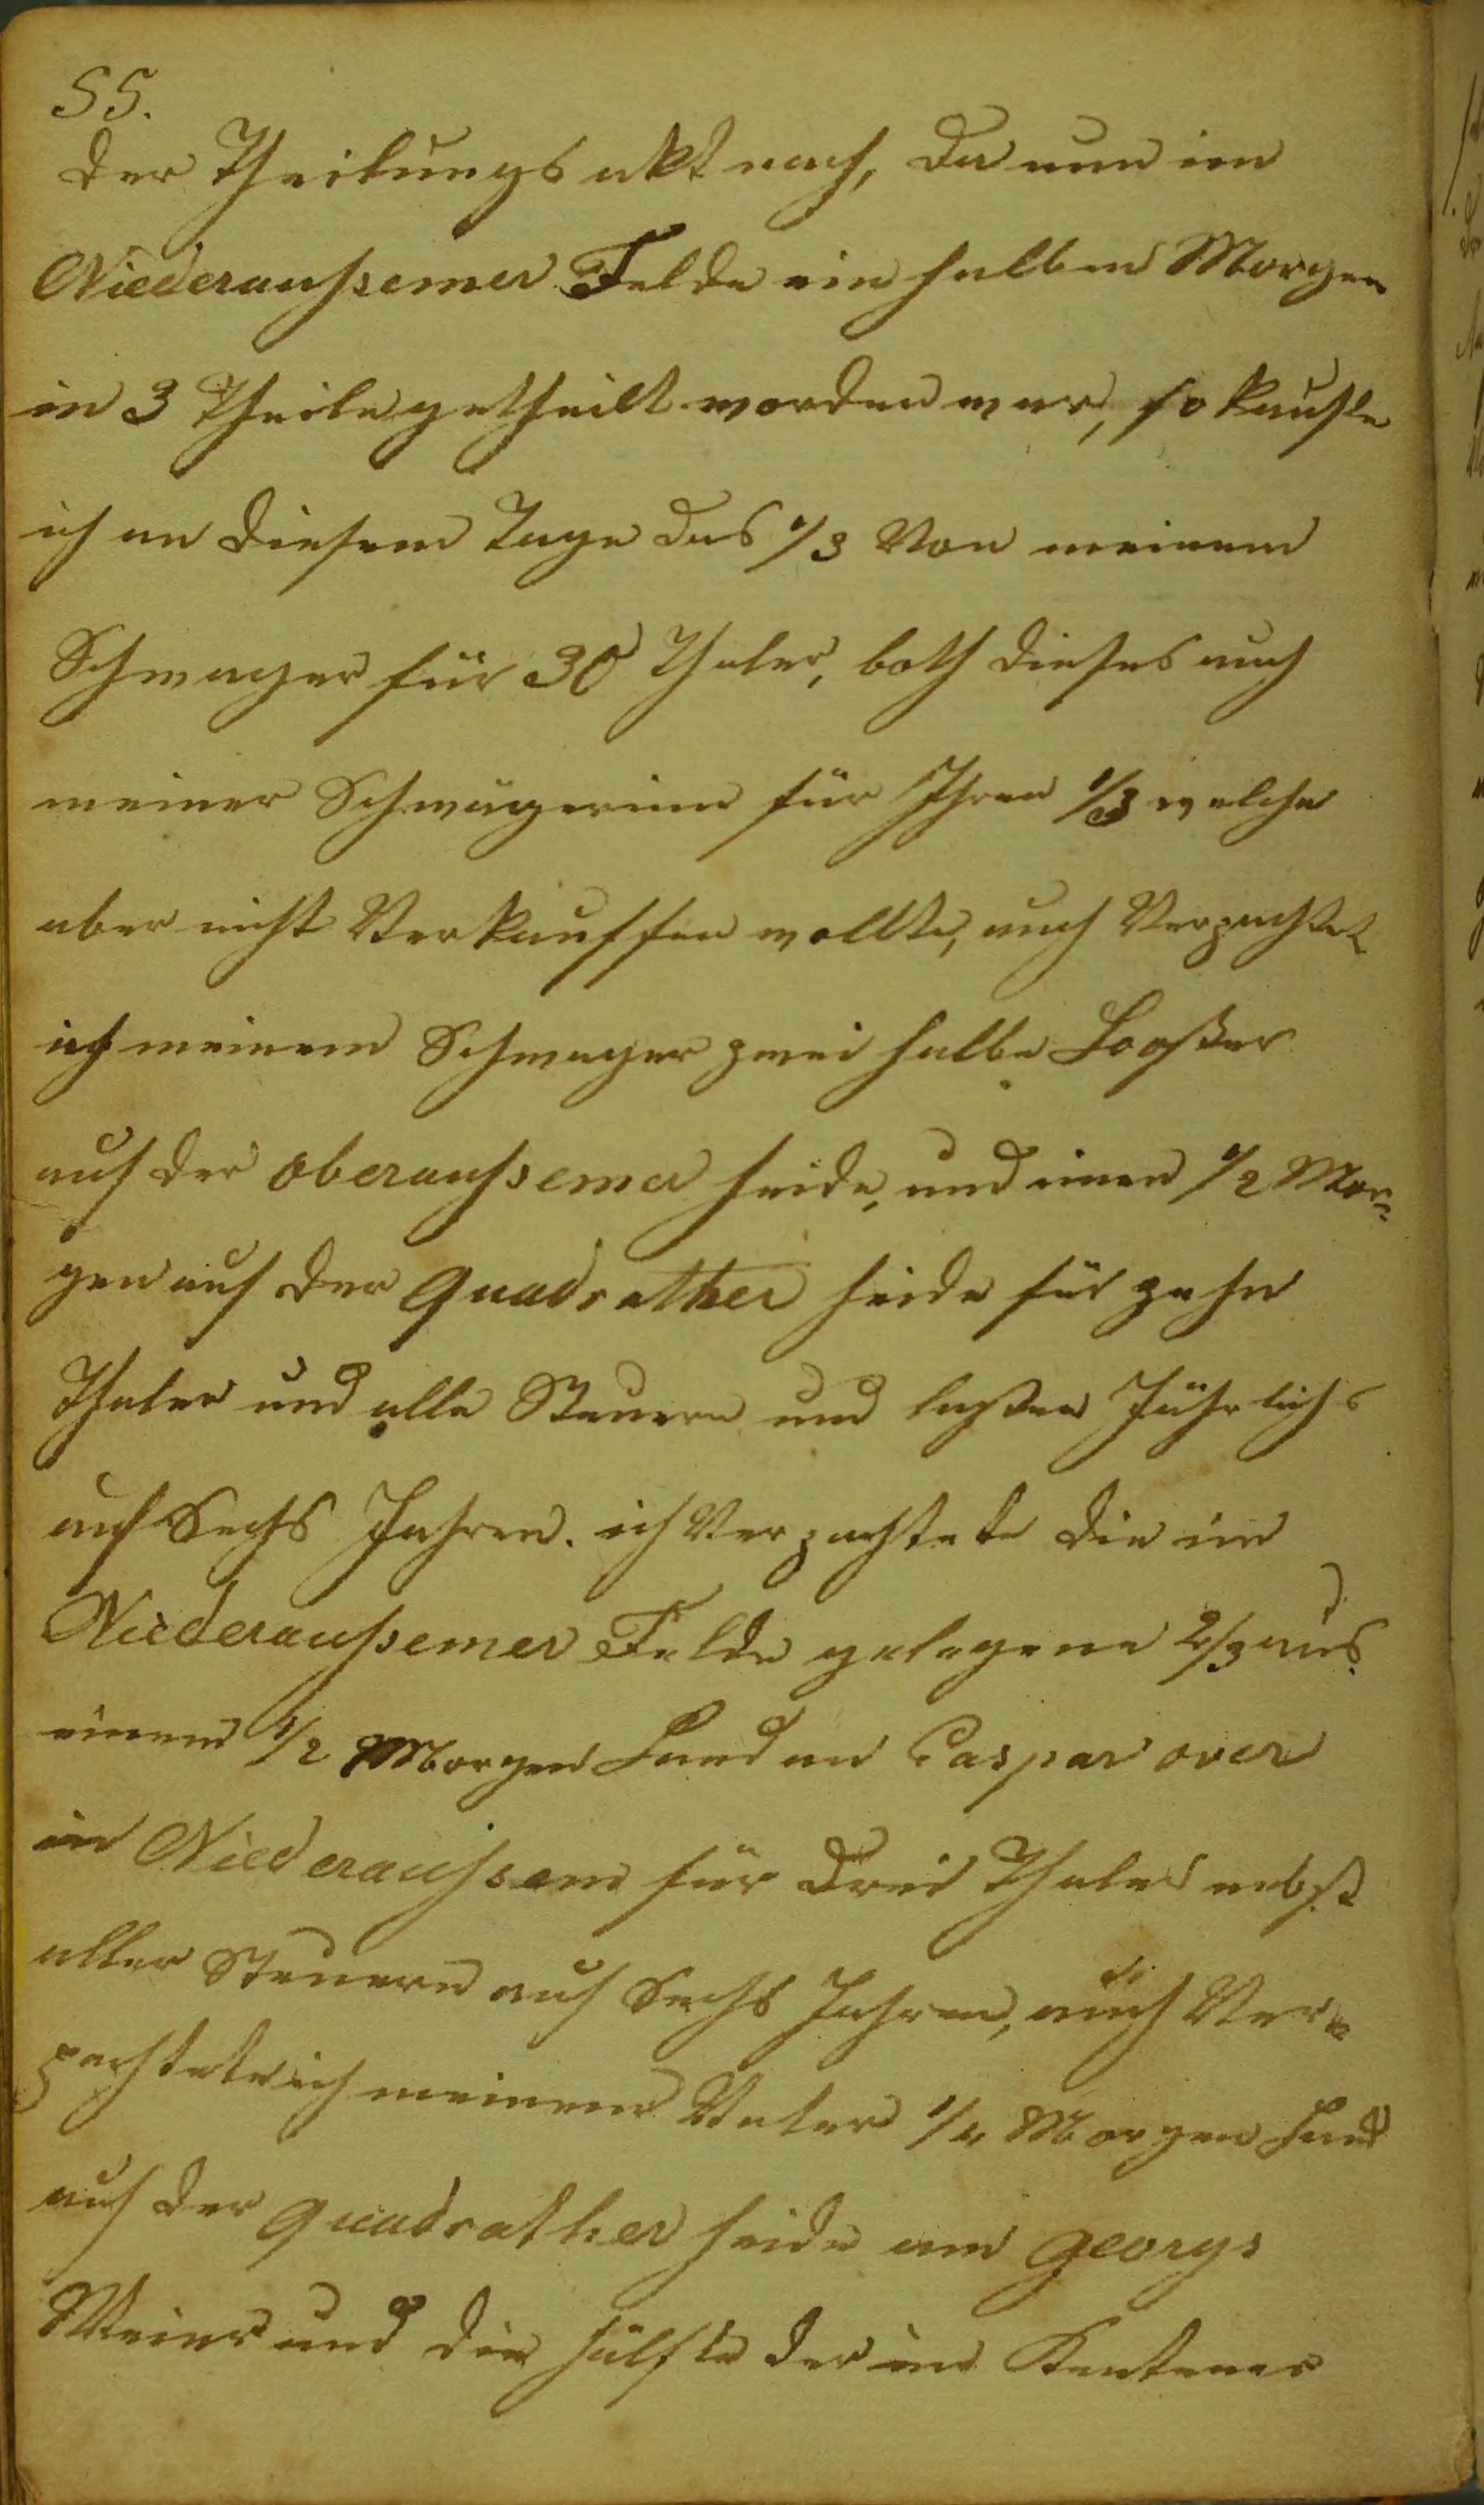 55.
der Theilungs akt nach, da nun im
Niederaußemer Felde ein halben Morgen
in 3 Theile getheilt worden war, so kaufte
ich an diesem Tage das 1/3 Von meinem
Schwager für 30 Thaler, both dieses auch
meiner Schwägerinn für Ihren 1/3 welche
aber nicht Verkauffen wollte, auch Verpachtet
ich meinem Schwager zwei halbe Looßer
auf der oberaußemer heide, und einen 1/2 Mor=
gen auf der Quadrather heide für zehn
Thaler und alle Steuern und lasten Jährlichs
auf Sechs Jahren. ich Verpachtete die im
Niederaußemer Felde gelegene 2/3 aus
einem 1/2 Morgen Land an Caspar over
in Niederaußem für drei Thaler nebst
aller Steuern auf Sechs Jahren, auch Ver=
pachtete ich meinem Vater 1/4 Morgen Land
auf der Quadrather heide am Georgs
Weier und die hälfte der im Kentener